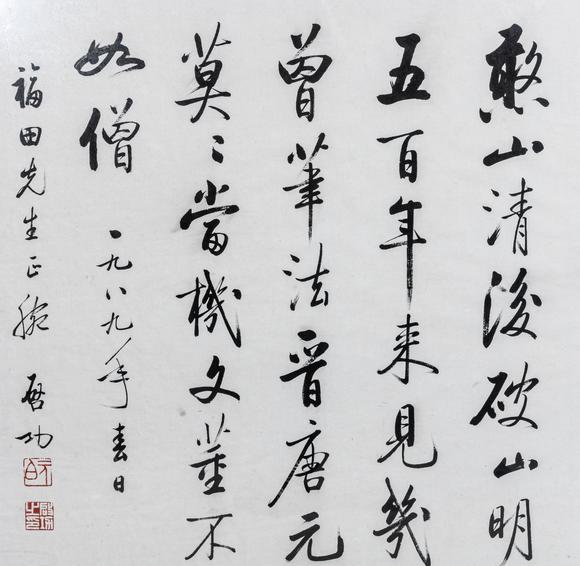 憨山清後破山明
五百年来見幾
曾筆法晉唐元
莫二當機文董不
如僧 一九八九年春日
福田先生正腕 启功